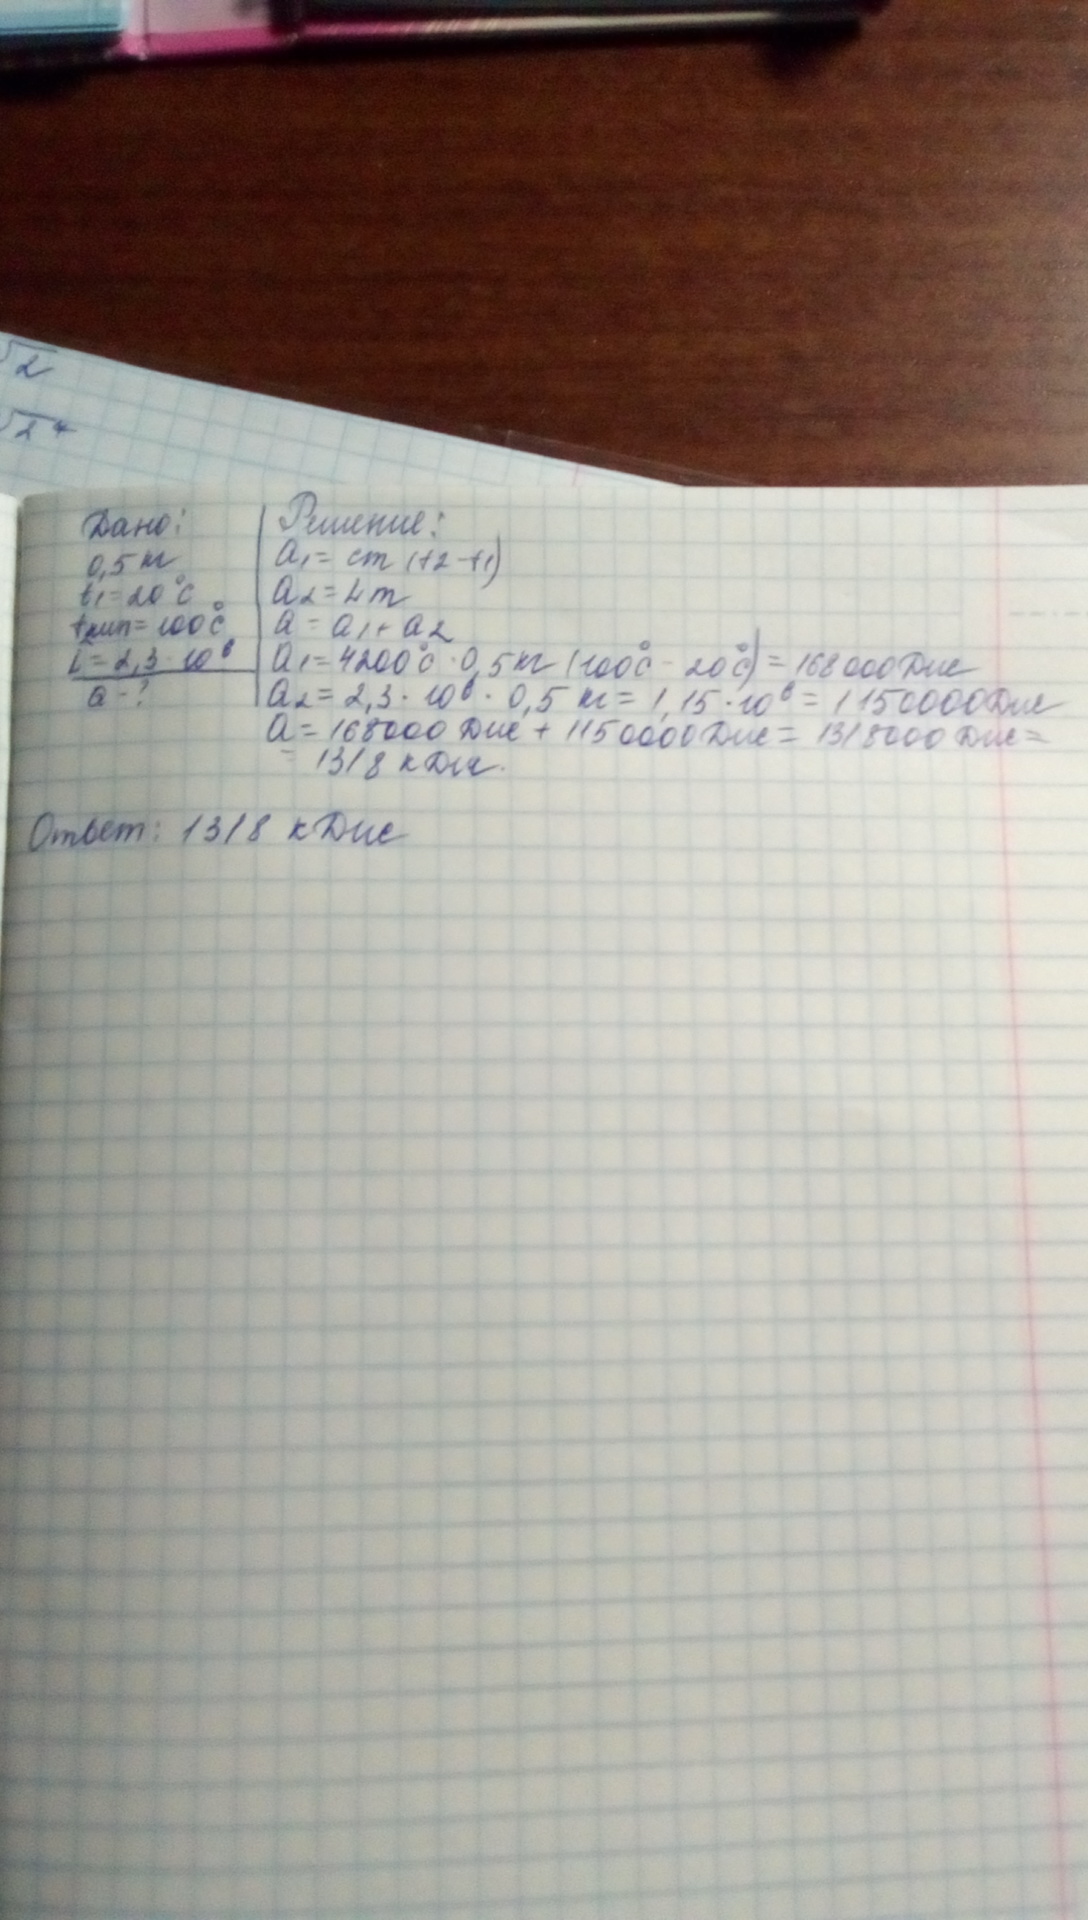 √2
√2 4
Дано:
0,5 кг
t1=20°C
tкип=100°C
L=2,3·10⁶
Q-?
Решение:
Q1= cm (t2-t1)
Q2=Lm
Q= Q1+Q2
Q1=4200°C·0,5кг (100°C-20°C)=168000Дж
Q2=2,3·10⁶·0,5 кг=1,15·10⁶=1150000Дж
Q=168000 Дж+1150000Дж=1318000 Дж=
= 1318 кДж.
Ответ: 1318 кДж